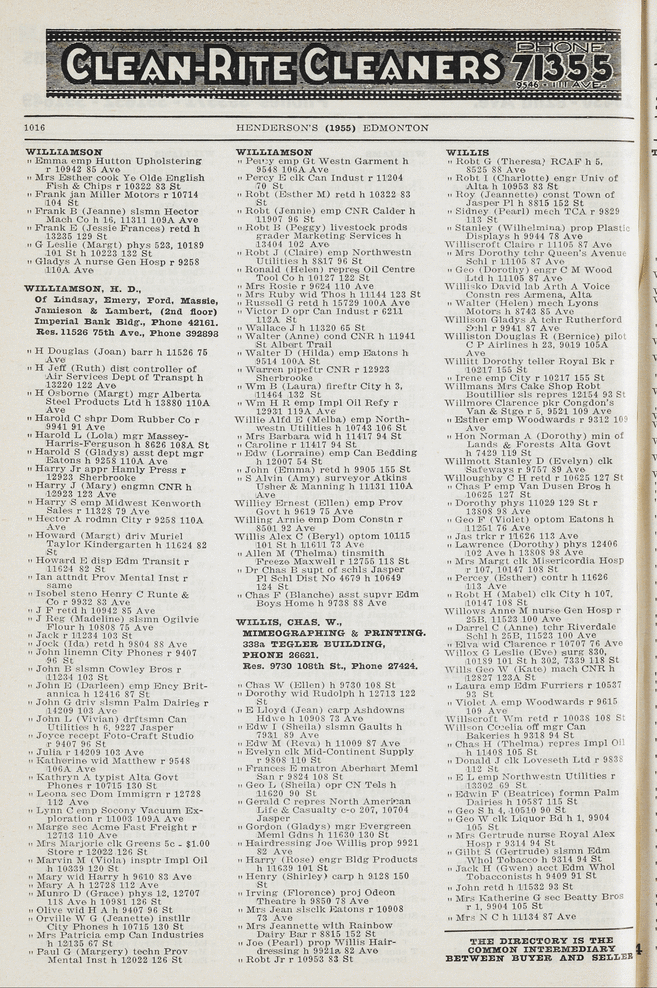 CLEAN-RITE CLEANERS PHONE 71355
9546 - 111 AVE.
1016 HENDERSON'S (1955) EDMONTON
WILLIAMSON
" Emma emp Hutton Upholstering
r 10942 85 Ave
" Mrs Esther cook Ye Olde English
Fish & Chips r 10322 83 St
" Frank jan Miller Motors r 10714
104 St
" Frank B (Jeanne) slsmn Hector
Mach Co h 16, 11311 109A Ave
" Frank E (Jessie Frances) retd h
13235 129 St
" G Leslie (Margt) phys 523, 10189
101 St h 10223 132 St
" Gladys A nurse Gen Hosp r 9258
110A Ave
WILLIAMSON, H. D.,
Of Lindsay, Emery, Ford, Massie,
Jamieson & Lambert, (2nd floor)
Imperial Bank Bldg., Phone 42161.
Res. 11526 75th Ave., Phone 392898
" H Douglas (Joan) barr h 11526 75
Ave
" H Jeff (Ruth) dist controller of
Air Services Dept of Transpt h
13220 122 Ave
" H Osborne (Margt) mgr Alberta
Steel Products Ltd h 13880 110A
Ave
" Harold C shpr Dom Rubber Co r
9941 91 Ave
" Harold L (Lola) mgr Massey-
Harris-Ferguson h 8626 108A St
" Harold S (Gladys) asst dept mgr
Eatons h 9258 110A Ave
" Harry Jr appr Hamly Press r
12923 Sherbrooke
" Harry J (Mary) engmn CNR h
12923 122 Ave
" Harry S emp Midwest Kenworth
Sales r 11328 79 Ave
" Hector A rodmn City r 9258 110A
Ave
" Howard (Margt) driv Muriel
Taylor Kindergarten h 11624 82
St
" Howard E disp Edm Transit r
11624 82 St
" Ian attndt Prov Mental Inst r
same
" Isobel steno Henry C Runte &
Co r 9932 83 Ave
" J F retd h 10942 85 Ave
" J Reg (Madeline) slsmn Ogilvie
Flour h 10808 75 Ave
" Jack r 11234 103 St
" Jock (Ida) retd h 9804 88 Ave
" John linemn City Phones r 9407
96 St
" John B slsmn Cowley Bros r
11234 103 St
" John E (Darleen) emp Ency Brit-
annica h 12416 87 St
" John G driv slsmn Palm Dairies r
14209 103 Ave
" John L (Vivian) drftsmn Can
Utilities h 6, 9227 Jasper
" Joyce recept Foto-Craft Studio
r 9407 96 St
" Julia r 14209 103 Ave
" Katherine wid Matthew r 9548
106A Ave
" Kathryn A typist Alta Govt
Phones r 10715 130 St
" Leona sec Dom Immigrn r 12728
112 Ave
" Lynn C emp Socony Vacuum Ex-
ploration r 11003 109A Ave
" Marge sec Acme Fast Freight r
12713 110 Ave
" Mrs Marjorie clk Greens 5c - $1.00
Store r 12022 126 St
" Marvin M (Viola) insptr Impl Oil
h 10339 120 St
" Mary wid Harry h 9610 83 Ave
" Mary A h 12728 112 Ave
" Munro D (Grace) phys 12, 12707
118 Ave h 10981 126 St
" Olive wid H A h 9407 96 St
" Orville W G (Jeanette) instllr
City Phones h 10715 130 St
" Mrs Patricia emp Can Industries
h 12135 67 St
" Paul G (Margery) techn Prov
Mental Inst h 12022 126 St
WILLIAMSON
" Percy emp Gt Westn Garment h
9548 106A Ave
" Percy E clk Can Indust r 11204
70 St
" Robt (Esther M) retd h 10322 83
St
" Robt (Jennie) emp CNR Calder h
11907 96 St
" Robt B (Peggy) livestock prods
grader Marketing Services h
13404 102 Ave
" Robt J (Claire) emp Northwestn
Utilities h 8817 96 St
" Ronald (Helen) repres Oil Centre
Tool Co h 10127 122 St
" Mrs Rosie r 9624 110 Ave
" Mrs Ruby wid Thos h 11144 123 St
" Russell G retd h 15729 100A Ave
" Victor D opr Can Indust r 6211
112A St
" Wallace J h 11320 65 St
" Walter (Anne) cond CNR h 11941
St Albert Trail
" Walter D (Hilda) emp Eatons h
9514 100A St
" Warren pipeftr CNR r 12923
Sherbrooke
" Wm B (Laura) fireftr City h 3,
11464 132 St
" Wm H R emp Impl Oil Refy r
12931 119A Ave
Willie Alfd E (Melba) emp North-
westn Utilities h 10743 106 St
" Mrs Barbara wid h 11417 94 St
" Caroline r 11417 94 St
" Edw (Lorraine) emp Can Bedding
h 12007 54 St
" John (Emma) retd h 9905 155 St
" S Alvin (Amy) surveyor Atkins
Usher & Manning h 11131 110A
Ave
Williey Ernest (Ellen) emp Prov
Govt h 9619 75 Ave
Willing Arnie emp Dom Constn r
8501 92 Ave
Willis Alex C (Beryl) optom 10115
101 St h 11611 73 Ave
" Allen M (Thelma) tinsmith
Freeze Maxwell r 12755 118 St
" Dr Chas B supt of schls Jasper
Pl Schl Dist No 4679 h 10649
124 St
" Chas F (Blanche) asst supvr Edm
Boys Home h 9738 88 Ave
WILLIS, CHAS. W.,
MIMEOGRAPHING & PRINTING.
338a TEGLER BUILDING,
PHONE 26621.
Res. 9730 108th St., Phone 27424.
" Chas W (Ellen) h 9730 108 St
" Dorothy wid Rudolph h 12713 122
St
" E Lloyd (Jean) carp Ashdowns
Hdwe h 10908 73 Ave
" Edw I (Sheila) slsmn Gaults h
7931 89 Ave
" Edw M (Reva) h 11009 87 Ave
" Evelyn clk Mid-Continent Supply
r 9808 110 St
" Frances E matron Aberhart Meml
San r 9824 108 St
" Geo L (Sheila) opr CN Tels h
11620 90 St
" Gerald C repres North American
Life & Casualty c-o 207, 10704
Jasper
" Gordon (Gladys) mgr Evergreen
Meml Gdns h 11630 130 St
" Hairdressing Joe Willis prop 9921
82 Ave
" Harry (Rose) engr Bldg Products
h 11639 101 St
" Henry (Shirley) carp h 9128 150
St
" Irving (Florence) proj Odeon
Theatre h 9850 78 Ave
" Mrs Jean slsclk Eatons r 10908
73 Ave
" Mrs Jeannette with Rainbow
Dairy Bar r 8815 152 St
" Joe (Pearl) prop Willis Hair-
dressing h 9921a 82 Ave
" Robt Jr r 10953 83 St
WILLIS
" Robt G (Theresa) RCAF h 5,
8525 88 Ave
" Robt I (Charlotte) engr Univ of
Alta h 10953 83 St
" Roy (Jeannette) const Town of
Jasper Pl h 8815 152 St
" Sidney (Pearl) mech TCA r 9829
113 St
" Stanley (Wilhelmina) prop Plastic
Displays h 9944 78 Ave
Williscroft Claire r 11105 87 Ave
" Mrs Dorothy tchr Queen's Avenue
Schl r 11105 87 Ave
" Geo (Dorothy) engr C M Wood
Ltd h 11105 87 Ave
Willisko David lab Arth A Voice
Constn res Armena, Alta
" Walter (Helen) mech Lyons
Motors h 8743 85 Ave
Willison Gladys A tchr Rutherford
Schl r 9941 87 Ave
Williston Douglas R (Bernice) pilot
C P Airlines h 23, 9019 105A
Ave
Willitt Dorothy teller Royal Bk r
10217 155 St
" Irene emp City r 10217 155 St
Willmans Mrs Cake Shop Robt
Boutillier sls repres 12154 93 St
Willmore Clarence pkr Congdon's
Van & Stge r 5, 9521 109 Ave
" Esther emp Woodwards r 9312 109
Ave
" Hon Norman A (Dorothy) min of
Lands & Forests Alta Govt
h 7429 119 St
Willmott Stanley D (Evelyn) clk
Safeways r 9757 89 Ave
Willoughby C H retd r 10625 127 St
" Chas P emp Van Dusen Bros h
10625 127 St
" Dorothy phys 11029 129 St r
13808 98 Ave
" Geo F (Violet) optom Eatons h
11251 76 Ave
" Jas trkr r 11626 113 Ave
" Lawrence (Dorothy) phys 12406
102 Ave h 13808 98 Ave
" Mrs Margt clk Misericordia Hosp
r 107, 10147 108 St
" Percey (Esther) contr h 11626
113 Ave
" Robt H (Mabel) clk City h 107,
10147 108 St
Willows Anne M nurse Gen Hosp r
25B, 11523 100 Ave
" Darrel C (Anne) tchr Riverdale
Schl h 25B, 11523 100 Ave
" Elva wid Clarence r 10707 76 Ave
Willox G Leslie (Eve) surg 830,
10189 101 St h 302, 7339 118 St
Wills Geo W (Kate) mach CNR h
12827 123A St
" Laura emp Edm Furriers r 10537
93 St
" Violet A emp Woodwards r 9615
109 Ave
Willscroft Wm retd r 10038 108 St
Willson Cecelia off mgr Can
Bakeries h 9318 94 St
" Chas H (Thelma) repres Impl Oil
h 11408 105 St
" Donald J clk Loveseth Ltd r 9838
112 St
" E L emp Northwestn Utilities r
13302 69 St
" Edwin P (Beatrice) formn Palm
Dairies h 10587 115 St
" Geo S h 4, 10510 90 St
" Geo W clk Liquor Bd h 1, 9904
105 St
" Mrs Gertrude nurse Royal Alex
Hosp r 9314 94 St
" Gilbt S (Gertrude) slsmn Edm
Whol Tobacco h 9314 94 St
" Jack H (Gwen) acct Edm Whol
Tobacconists h 9409 91 St
" John retd h 11532 93 St
" Mrs Katherine G sec Beatty Bros
r 1, 9904 105 St
" Mrs N C h 11134 87 Ave
THE DIRECTORY IS THE
COMMON INTERMEDIARY
BETWEEN BUYER AND SELLER